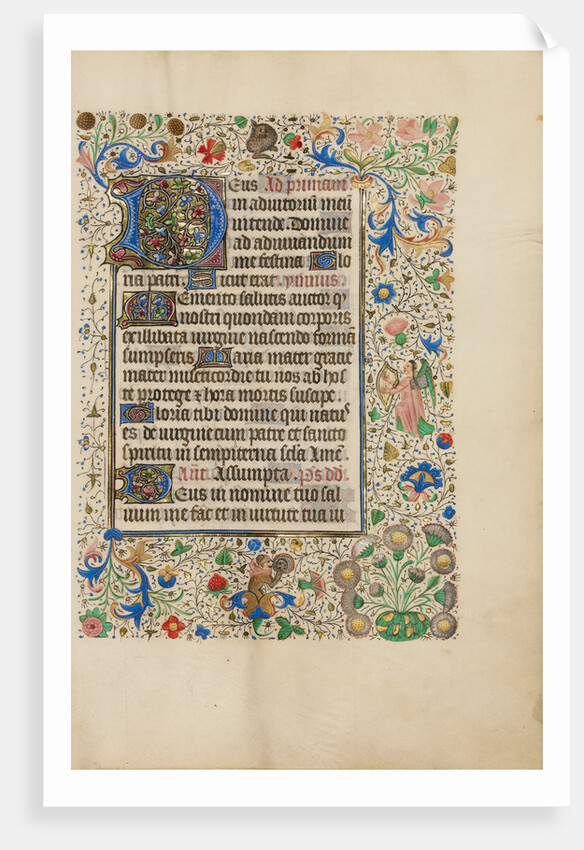 Deus Ad primam
in adiutoriū meū
intende. Domine
ad adiuuandum
me festina Glo
ria patri. Sicut erat. ymnus
Memento salutis auctor q̄
nostri quondam corporis
ex illibata uirgine nascendo formā
sumpseris Maria mater gracie
mater misericordie tu nos ab hos
te protege ⁊ hora mortis suscipe
Gloria tibi domine qui natus
es de uirgine cum patre et sancto
spiritu in sempiterna scla Amē
Ant̄ Assumpta. Ps dd
Deus in nomine tuo sal
uum me fac et in uirtute tua iu